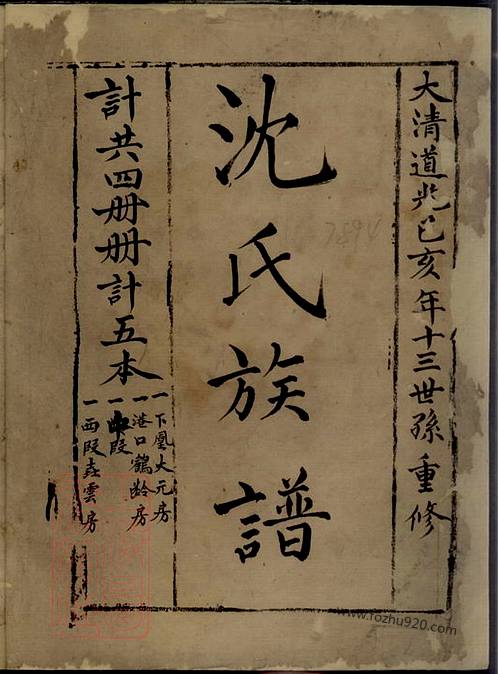 大清道光己亥年十三世孫重修
沈氏族譜
計共四册册計五本
一下凰大元房
一港口鶴齡房
一中段
一西段垚雲房
7894
www.fozhu920.com